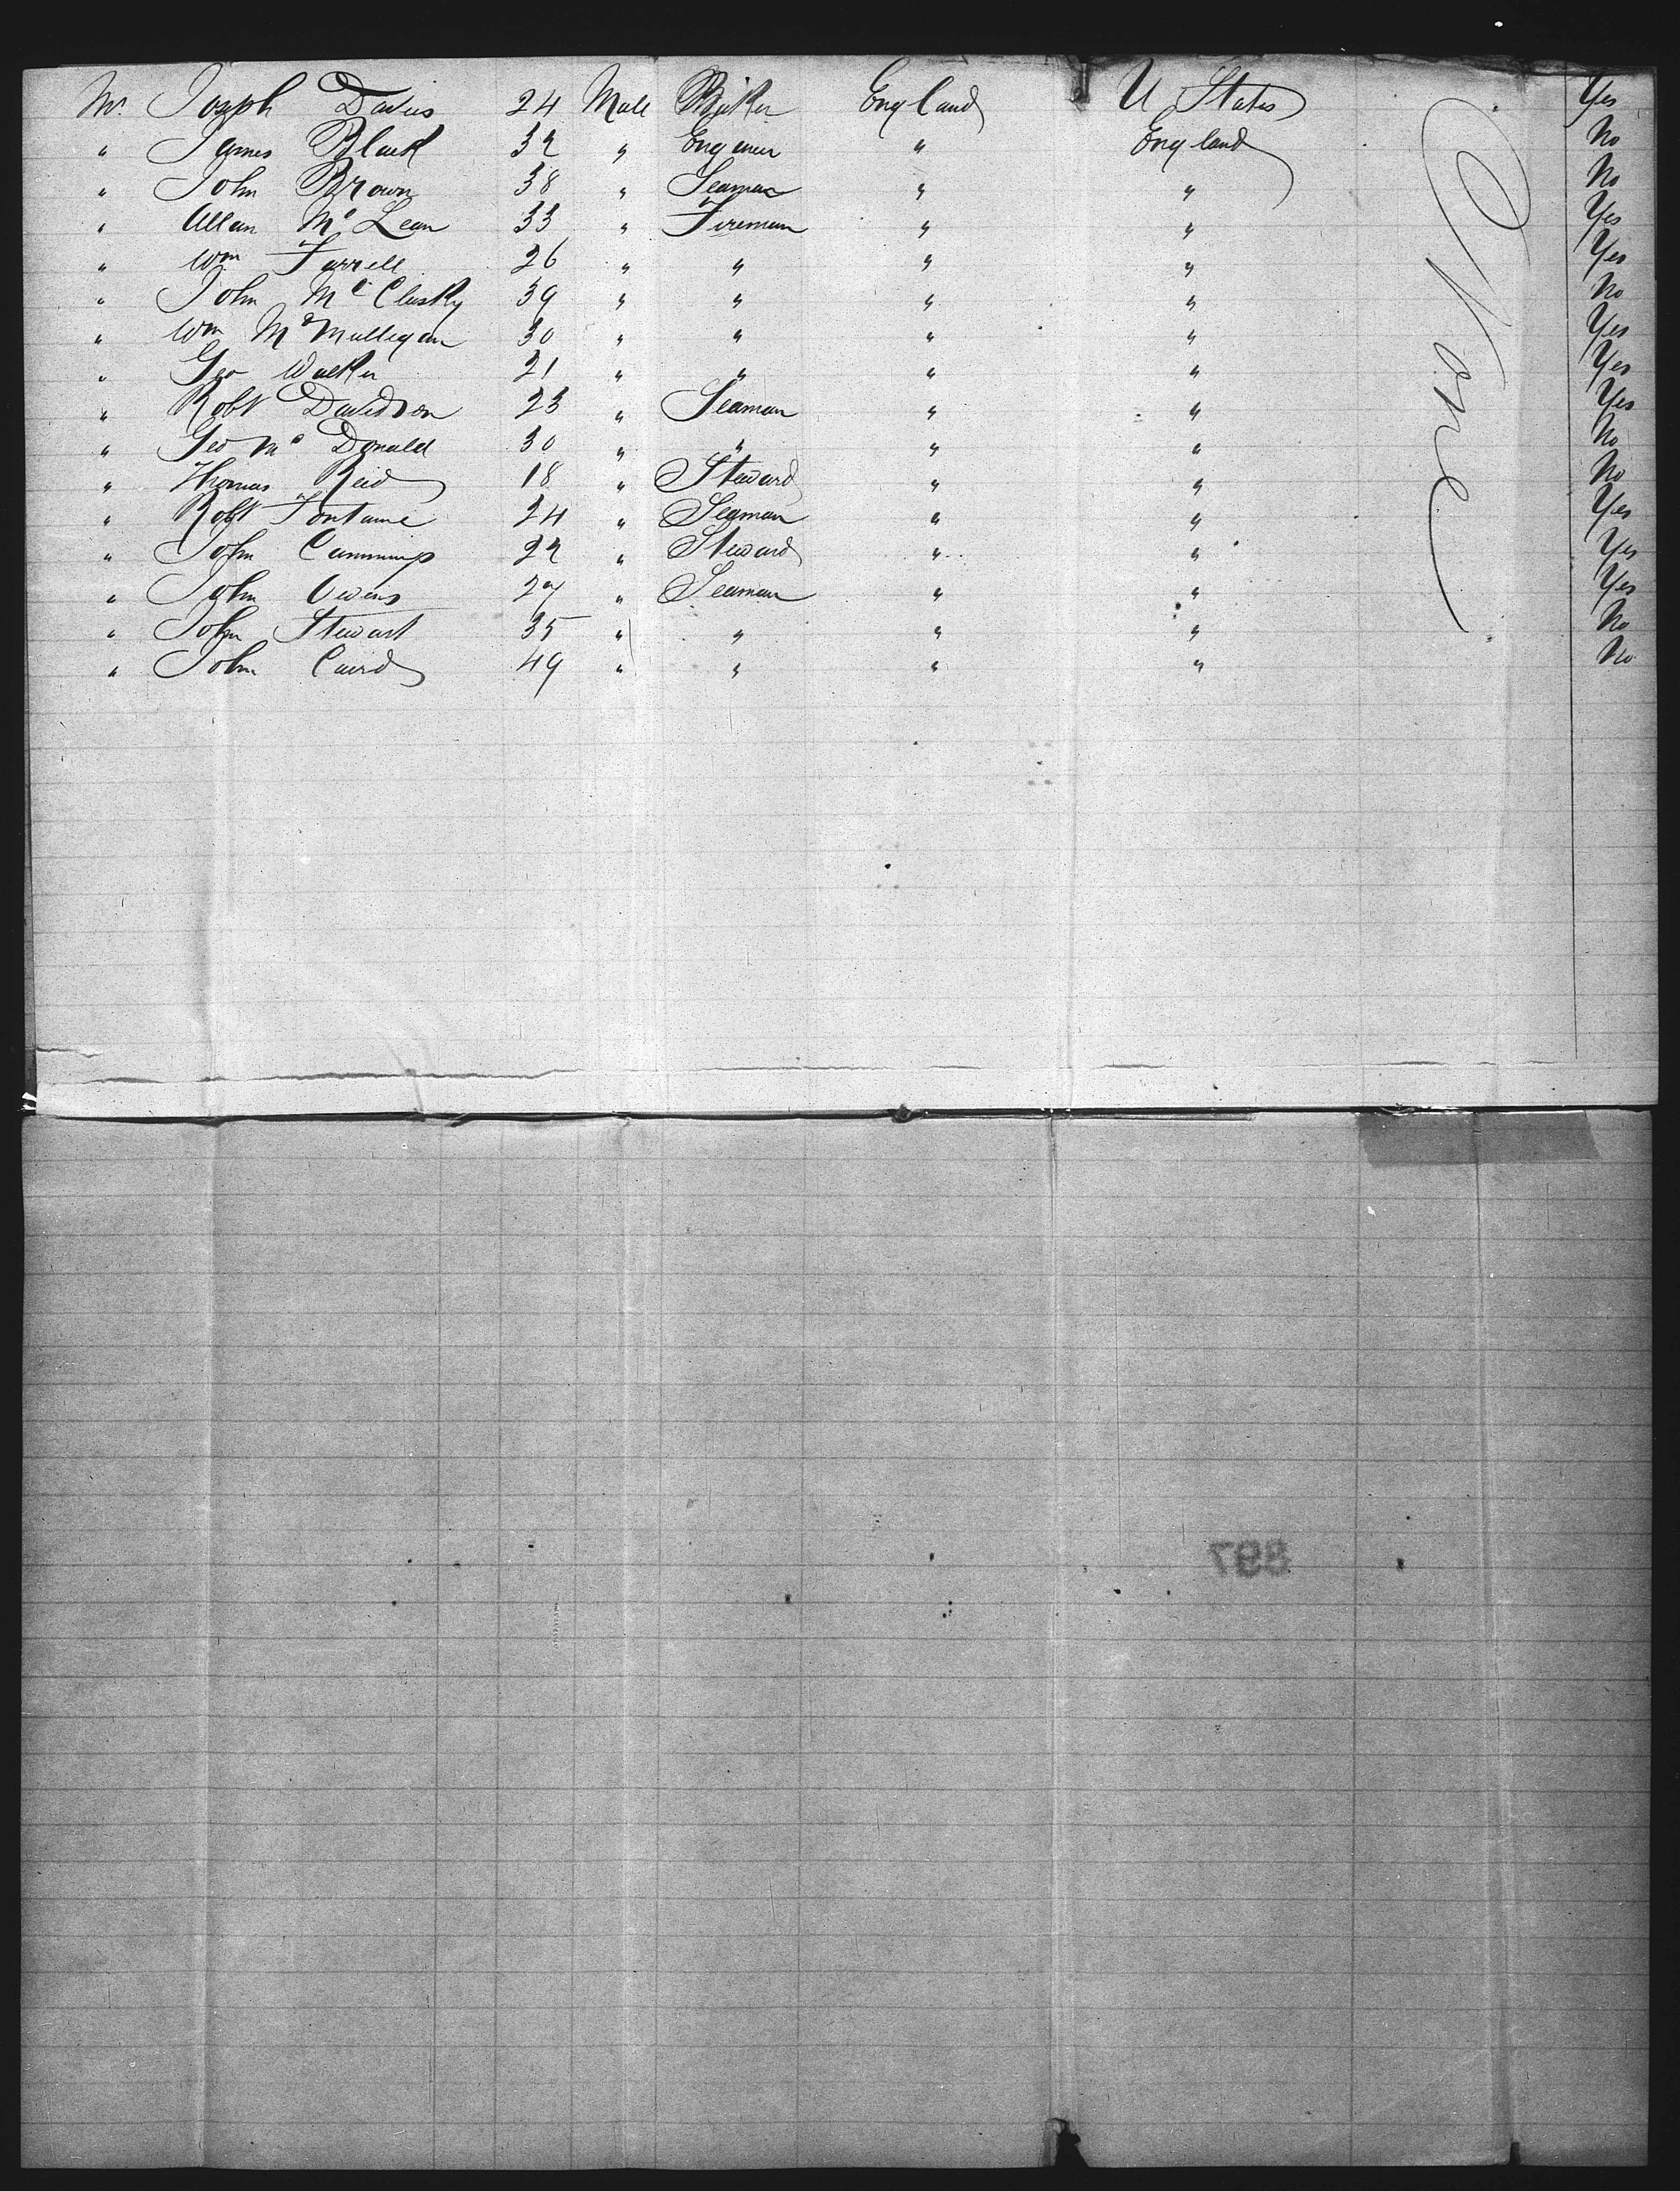 Mr. Joseph Davies 24 Male Baker England U States Yes
" James Black 32 " Engineer " England No
" John Brown 38 " Seaman " " No
" Allan Mc Lean 33 " Fireman " " Yes
" Wm Farrell 26 " " " " Yes
" John Mc Clusky 39 " " " " No
" Wm McMulligan 30 " " " " Yes
" Geo Walker 21 " " " " Yes
" Robt Davidson 23 " Seaman " " Yes
" Geo Mc Donald 30 " " " " No
" Thomas Reid 18 " Steward " " No
" Robt Fontaine 24 " Seaman " " Yes
" John Cummings 22 " Steward " " Yes
" John Owens 27 " Seaman " " Yes
" John Stewart 35 " " " " No
" John Caird 49 " " " " No
None
897